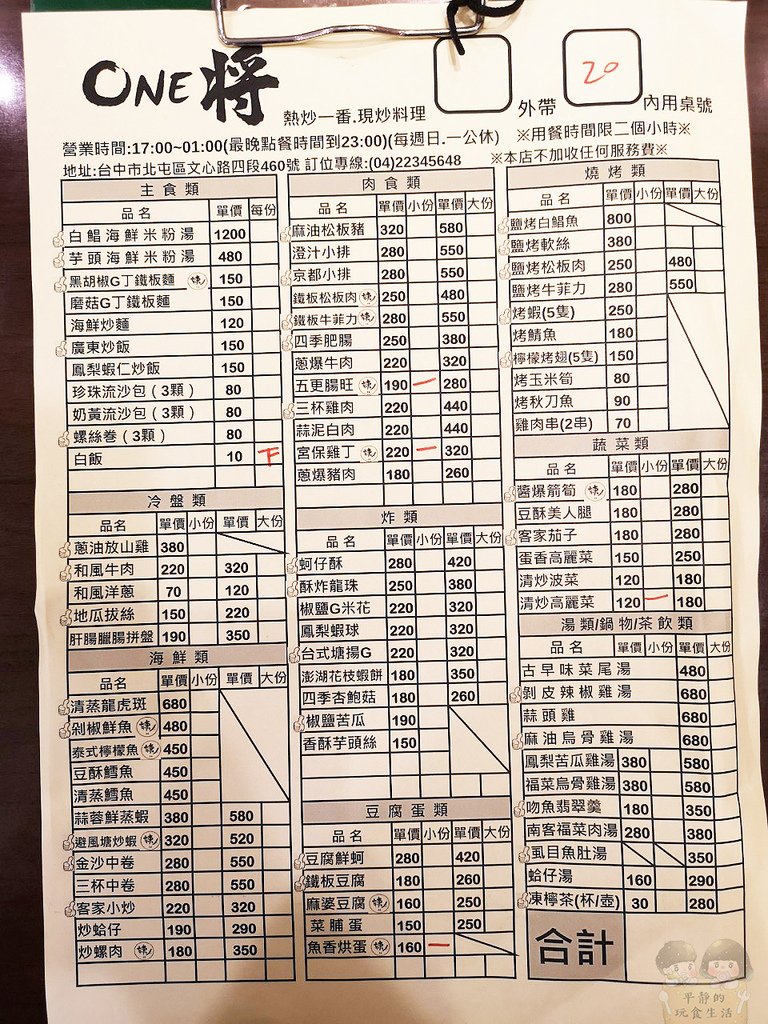 ONE 将 熱炒一番.現炒料理
外帶
20 內用桌號
營業時間:17:00~01:00(最晚點餐時間到23:00)(每週日.一公休) ※用餐時間限二個小時※
地址:台中市北屯區文心路四段460號 訂位專線:(04)22345648 ※本店不加收任何服務費※
主食類
品名 單價 每份
白鯧海鮮米粉湯 1200
芋頭海鮮米粉湯 480
黑胡椒G丁鐵板麵 150
磨菇G丁鐵板麵 150
海鮮炒麵 120
廣東炒飯 150
鳳梨蝦仁炒飯 150
珍珠流沙包(3顆) 80
奶黃流沙包(3顆) 80
螺絲卷(3顆) 80
白飯 10 下
冷盤類
品名 單價 小份 單價 大份
蔥油放山雞 380
和風牛肉 220 320
和風洋蔥 70 120
地瓜拔絲 150 220
肝腸臘腸拼盤 190 350
海鮮類
品名 單價 小份 單價 大份
清蒸龍虎斑 680
剁椒鮮魚 480
泰式檸檬魚 450
豆酥鱈魚 450
清蒸鱈魚 450
蒜蓉鮮蒸蝦 380 580
避風塘炒蝦 320 520
金沙中卷 280 550
三杯中卷 280 550
客家小炒 220 320
炒蛤仔 190 290
炒螺肉 180 350
肉食類
品名 單價 小份 單價 大份
麻油松板豬 320 580
澄汁小排 280 550
京都小排 280 550
鐵板松板肉 250 480
鐵板牛菲力 280 550
四季肥腸 250 380
蔥爆牛肉 220 320
五更腸旺 190 一 280
三杯雞肉 220 440
蒜泥白肉 220 440
宮保雞丁 220 一 320
蔥爆豬肉 180 260
炸類
品名 單價 小份 單價 大份
蚵仔酥 280 420
酥炸龍珠 250 380
椒鹽G米花 220 320
鳳梨蝦球 220 320
台式塘揚G 220 320
澎湖花枝蝦餅 180 350
四季杏鮑菇 180 260
椒鹽苦瓜 190
香酥芋頭絲 150
豆腐蛋類
品名 單價 小份 單價 大份
豆腐鮮蚵 280 420
鐵板豆腐 180 260
麻婆豆腐 160 250
菜脯蛋 150 250
魚香烘蛋 160 一
燒烤類
品名 單價 小份 單價 大份
鹽烤白鯧魚 800
鹽烤軟絲 380
鹽烤松板肉 250 480
鹽烤牛菲力 280 550
烤蝦(5隻) 250
烤鯖魚 180
檸檬烤翅(5隻) 150
烤玉米筍 80
烤秋刀魚 90
雞肉串(2串) 70
蔬菜類
品名 單價 小份 單價 大份
醬爆箭筍 180 280
豆酥美人腿 180 280
客家茄子 180 280
蛋香高麗菜 150 250
清炒波菜 120 180
清炒高麗菜 120 一 180
湯類/鍋物/茶飲類
品名 單價 小份 單價 大份
古早味菜尾湯 480
剝皮辣椒雞湯 680
蒜頭雞 680
麻油烏骨雞湯 680
鳳梨苦瓜雞湯 380 580
福菜烏骨雞湯 380 580
吻魚翡翠羹 180 350
南客福菜肉湯 280 380
虱目魚肚湯 350
蛤仔湯 160 290
凍檸茶(杯/壺) 30 280
合計
平靜的
玩食生活